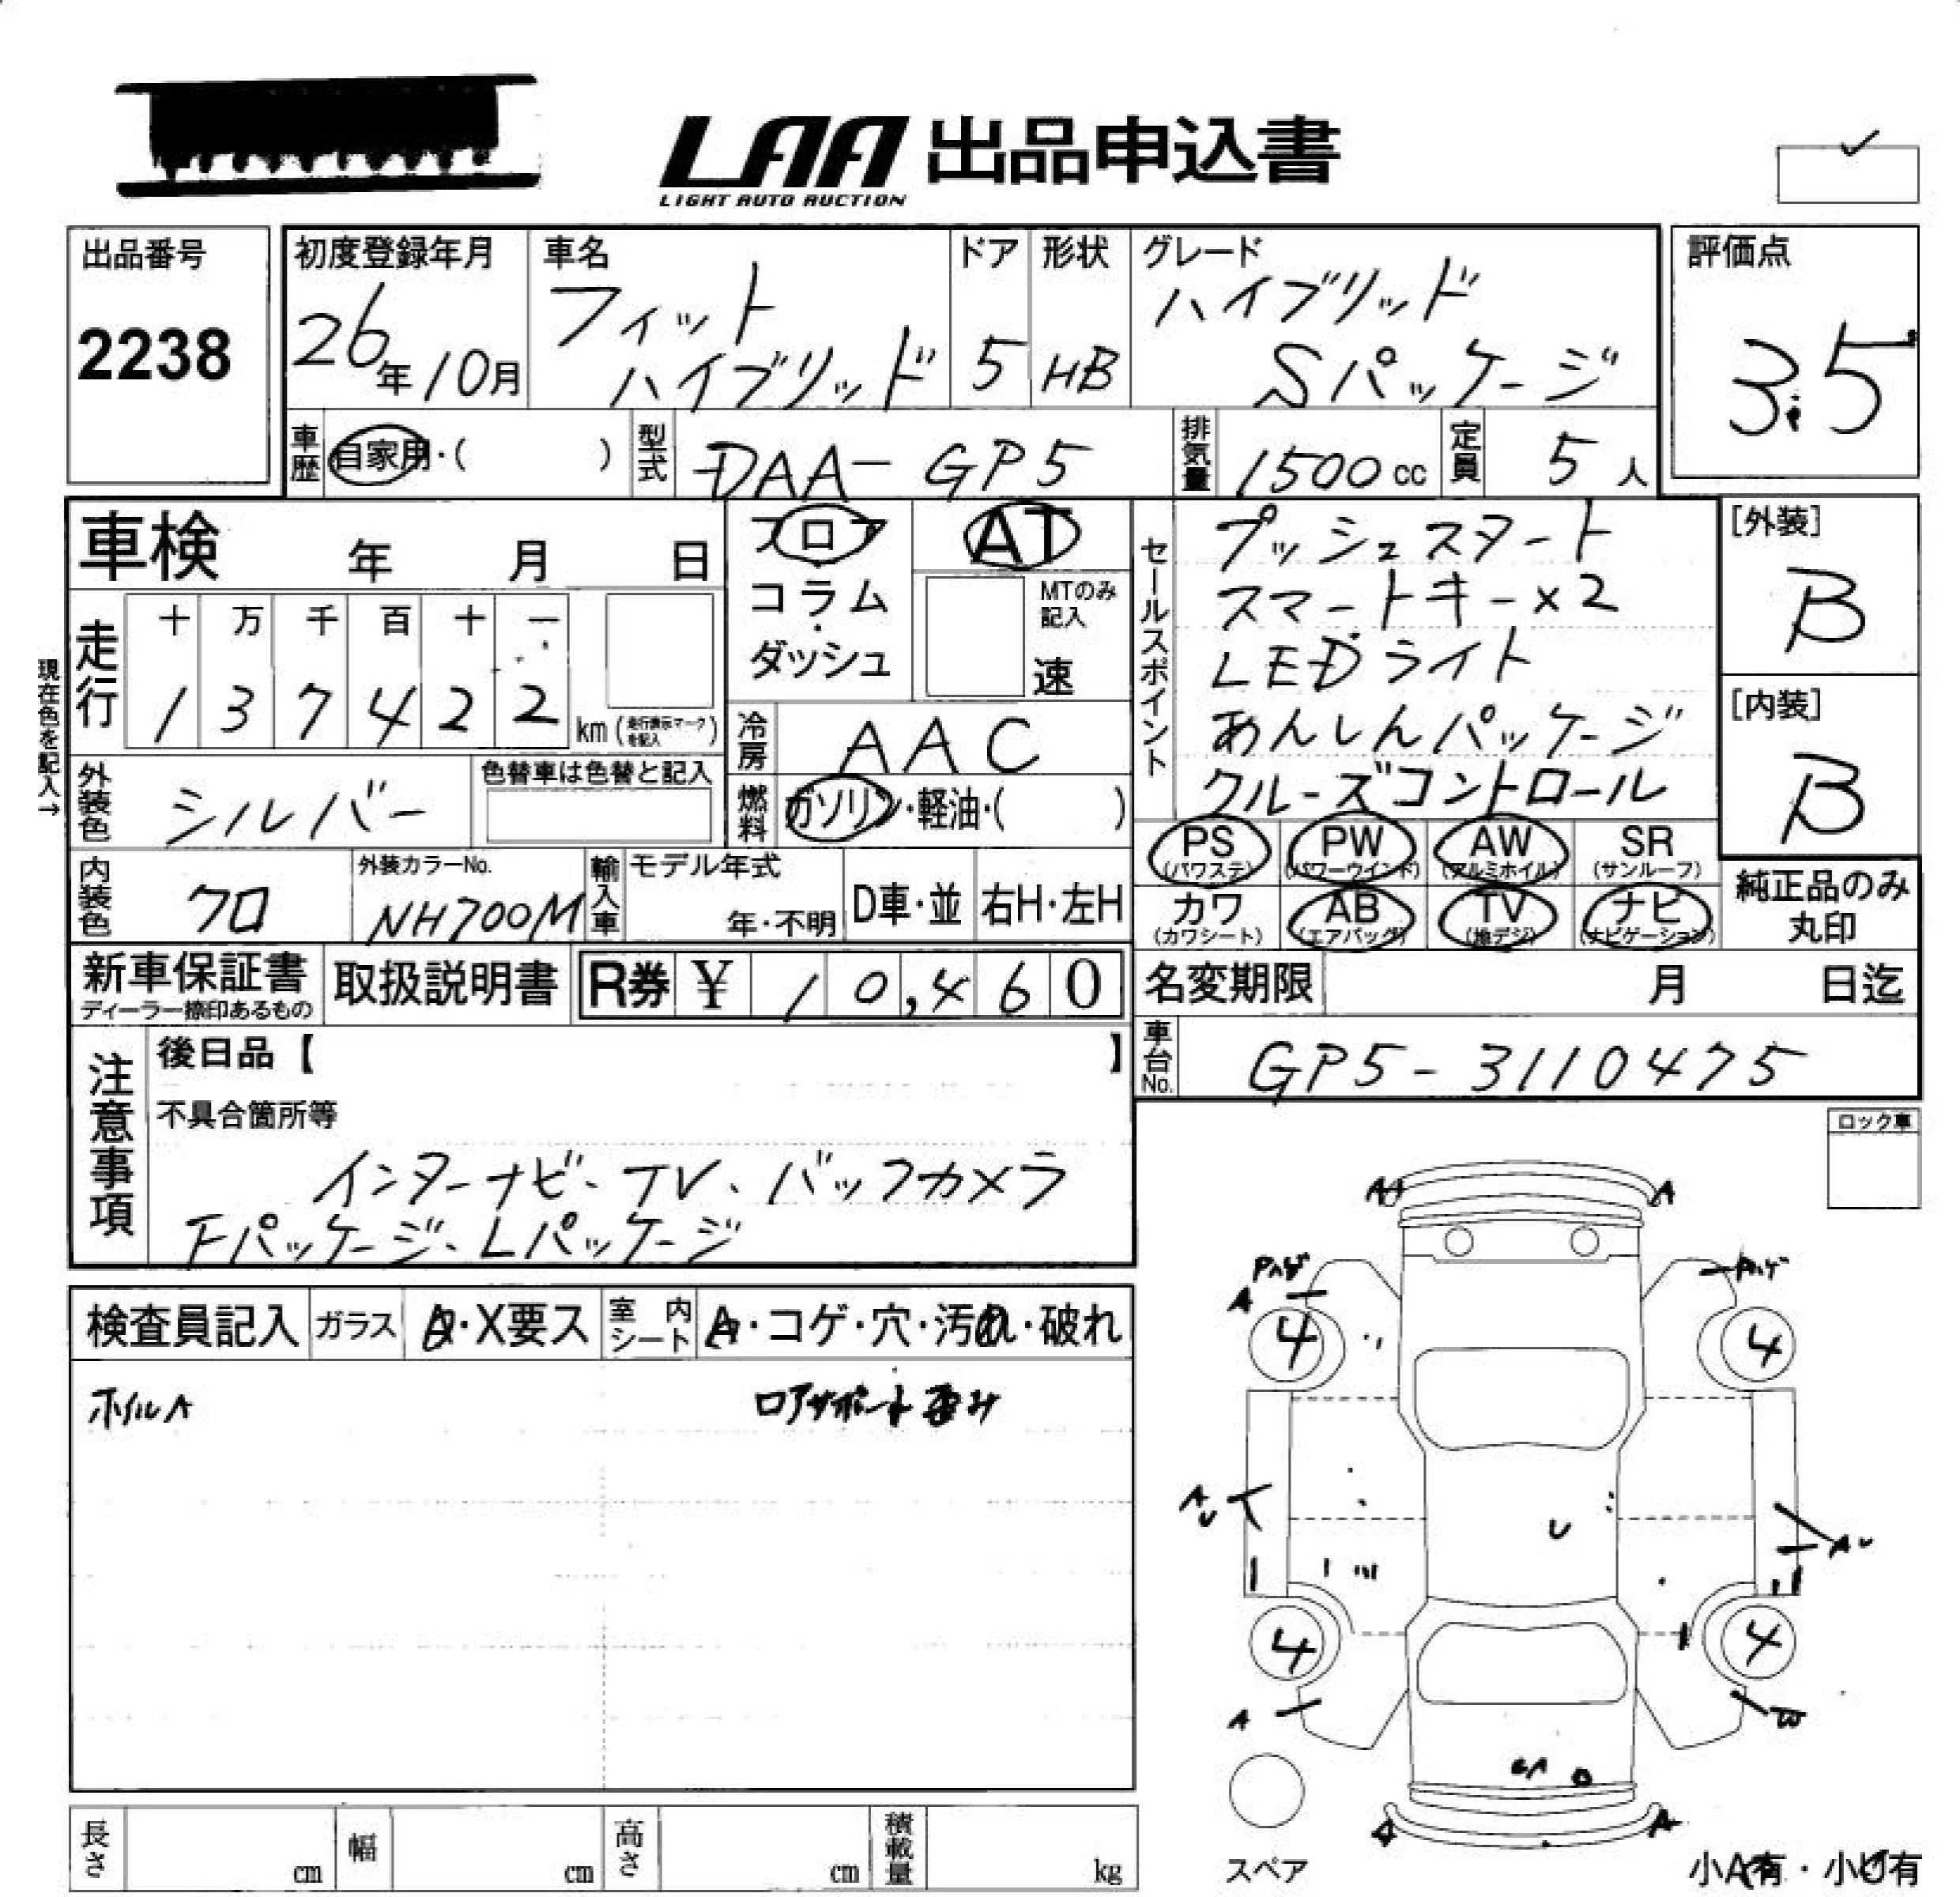 LAA 出品申込書
LIGHT AUTO AUCTION
出品番号
2238
初度登録年月
26年10月
車名
フィット
ハイブリッド
ドア
5
形状
HB
グレード
ハイブリッド
Sパッケージ
評価点
3.5
車歴
自家用・( )
型式
DAA-GP5
排気量
1500cc
定員
5人
車検 年 月 日
フロア
コラム
・
ダッシュ
AT
MTのみ
記入
速
セールスポイント
プッシュスタート
スマートキー×2
LEDライト
あんしんパッケージ
クルーズコントロール
[外装]
B
[内装]
B
現在色を記入→
走行
十 万 千 百 十 一
1 3 7 4 2 2
km (走行表示マークを記入)
冷房
AAC
燃料
ガソリン・軽油・( )
外装色
シルバー
色替車は色替と記入
PS (パワステ)
PW (パワーウインド)
AW (アルミホイル)
SR (サンルーフ)
カワ (カワシート)
AB (エアバッグ)
TV (地デジ)
ナビ (ナビゲーション)
純正品のみ
丸印
内装色
クロ
外装カラーNo.
NH700M
輸入車
モデル年式
年・不明
D車・並
右H・左H
新車保証書
ディーラー捺印あるもの
取扱説明書
R券 ¥ 10,460
名変期限 月 日迄
車台No.
GP5-3110475
注意事項
後日品【 】
不具合箇所等
インターナビ、TV、バックカメラ
Fパッケージ、Lパッケージ
ロック車
検査員記入
ガラス
・X要ス
室内シート
A・コゲ・穴・汚れ・破れ
ホイルA
ロアサポート歪み
A A
Pハゲ
A
4 4
A U
U
A U
4 4
A
W
A A
スペア
小A有・小U有
長さ cm
幅 cm
高さ cm
積載量 kg